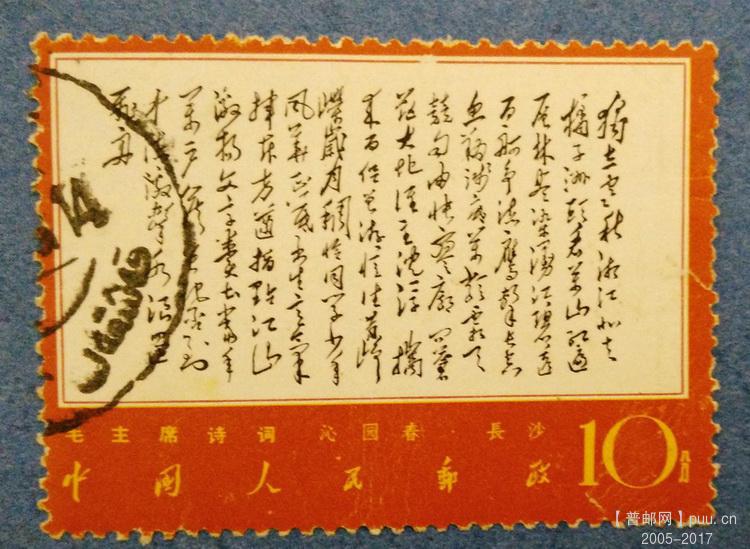 獨立寒秋湘江北去
橘子洲頭看萬山紅遍
层林尽染漫江碧透
百舸争流鹰擊长空
魚翔淺底萬類霜天
競自由悵寥廓问苍
茫大地谁主沉浮携
来百侣曾游忆往昔峥
嵘歲月稠恰同学少年
风华正茂书生意氣
揮斥方遒指點江山
激揚文字粪土当年
萬户侯曾记否到
中流擊水浪遏
飛舟
毛主席诗词 沁园春·長沙
中國人民郵政
10分
【普邮网】puu.cn
2005-2017